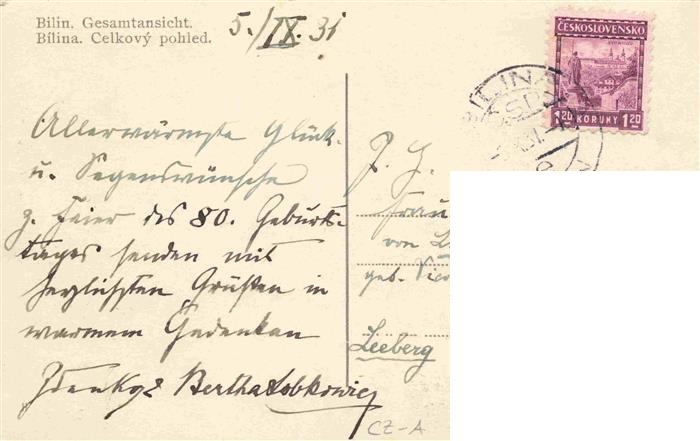 Bilin. Gesamtansicht.
Bílina. Celkový pohled.
5./IX. 31
ČESKOSLOVENSKO
1.20 KORUNY 1.20
BILINA
Allerwärmste Glück-
u. Segenswünsche
z. Feier des 80. Geburts-
tages senden mit
herzlichsten Grüßen in
warmem Gedenken
Bertha Lobkowicz
Frau
von
geb.
Leeberg
CZ-A